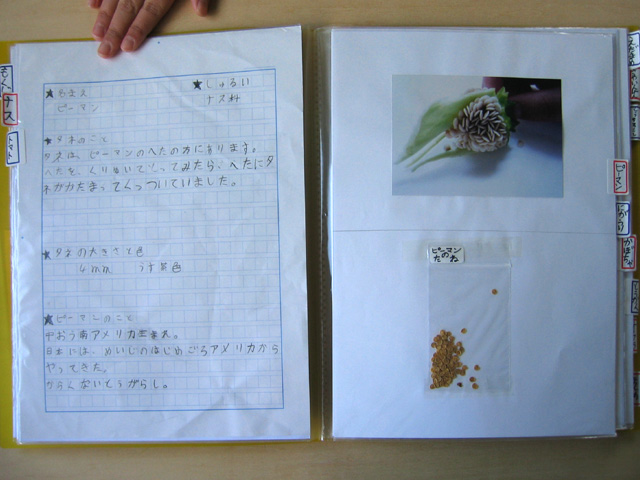 ★なまえ
ピーマン
★しゅるい
ナス科
★タネのこと
タネは、ピーマンのへたの方にあります。
へたを、くりぬいてとってみたら、へたにタ
ネがかたまってくっついていました。
★タネの大きさと色
4mm うす茶色
★ピーマンのこと
中おう南アメリカ生まれ。
日本には、めいじのはじめごろアメリカから
やってきた。
からくないとうがらし。
もくじ
ナス
トマト
ピーマンのたね
ピーマン
かぼちゃ